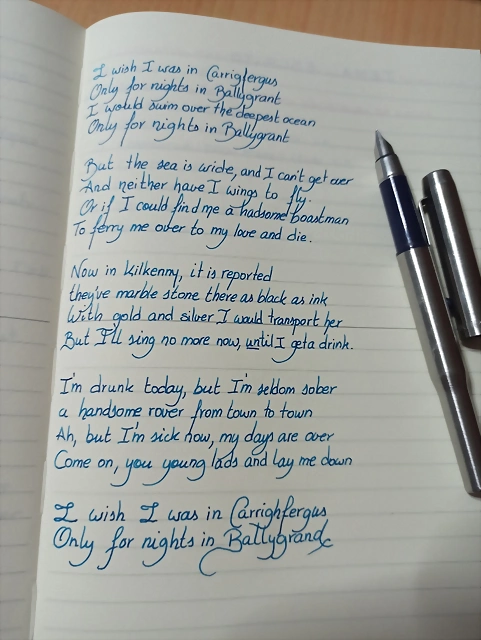 I wish I was in Carrigfergus
Only for nights in Ballygrant
I would swim over the deepest ocean
Only for nights in Ballygrant
But the sea is wide, and I can't get over
And neither have I wings to fly.
Or if I could find me a hadsome boastman
To ferry me over to my love and die.
Now in kilkenny, it is reported
they've marble stone there as black as ink
With gold and silver I would transport her
But I'll sing no more now, until I get a drink.
I'm drunk today, but I'm seldom sober
a handsome rover from town to town
Ah, but I'm sick now, my days are over
Come on, you young lads and lay me down
I wish I was in Carrighfergus
Only for nights in Ballygrand